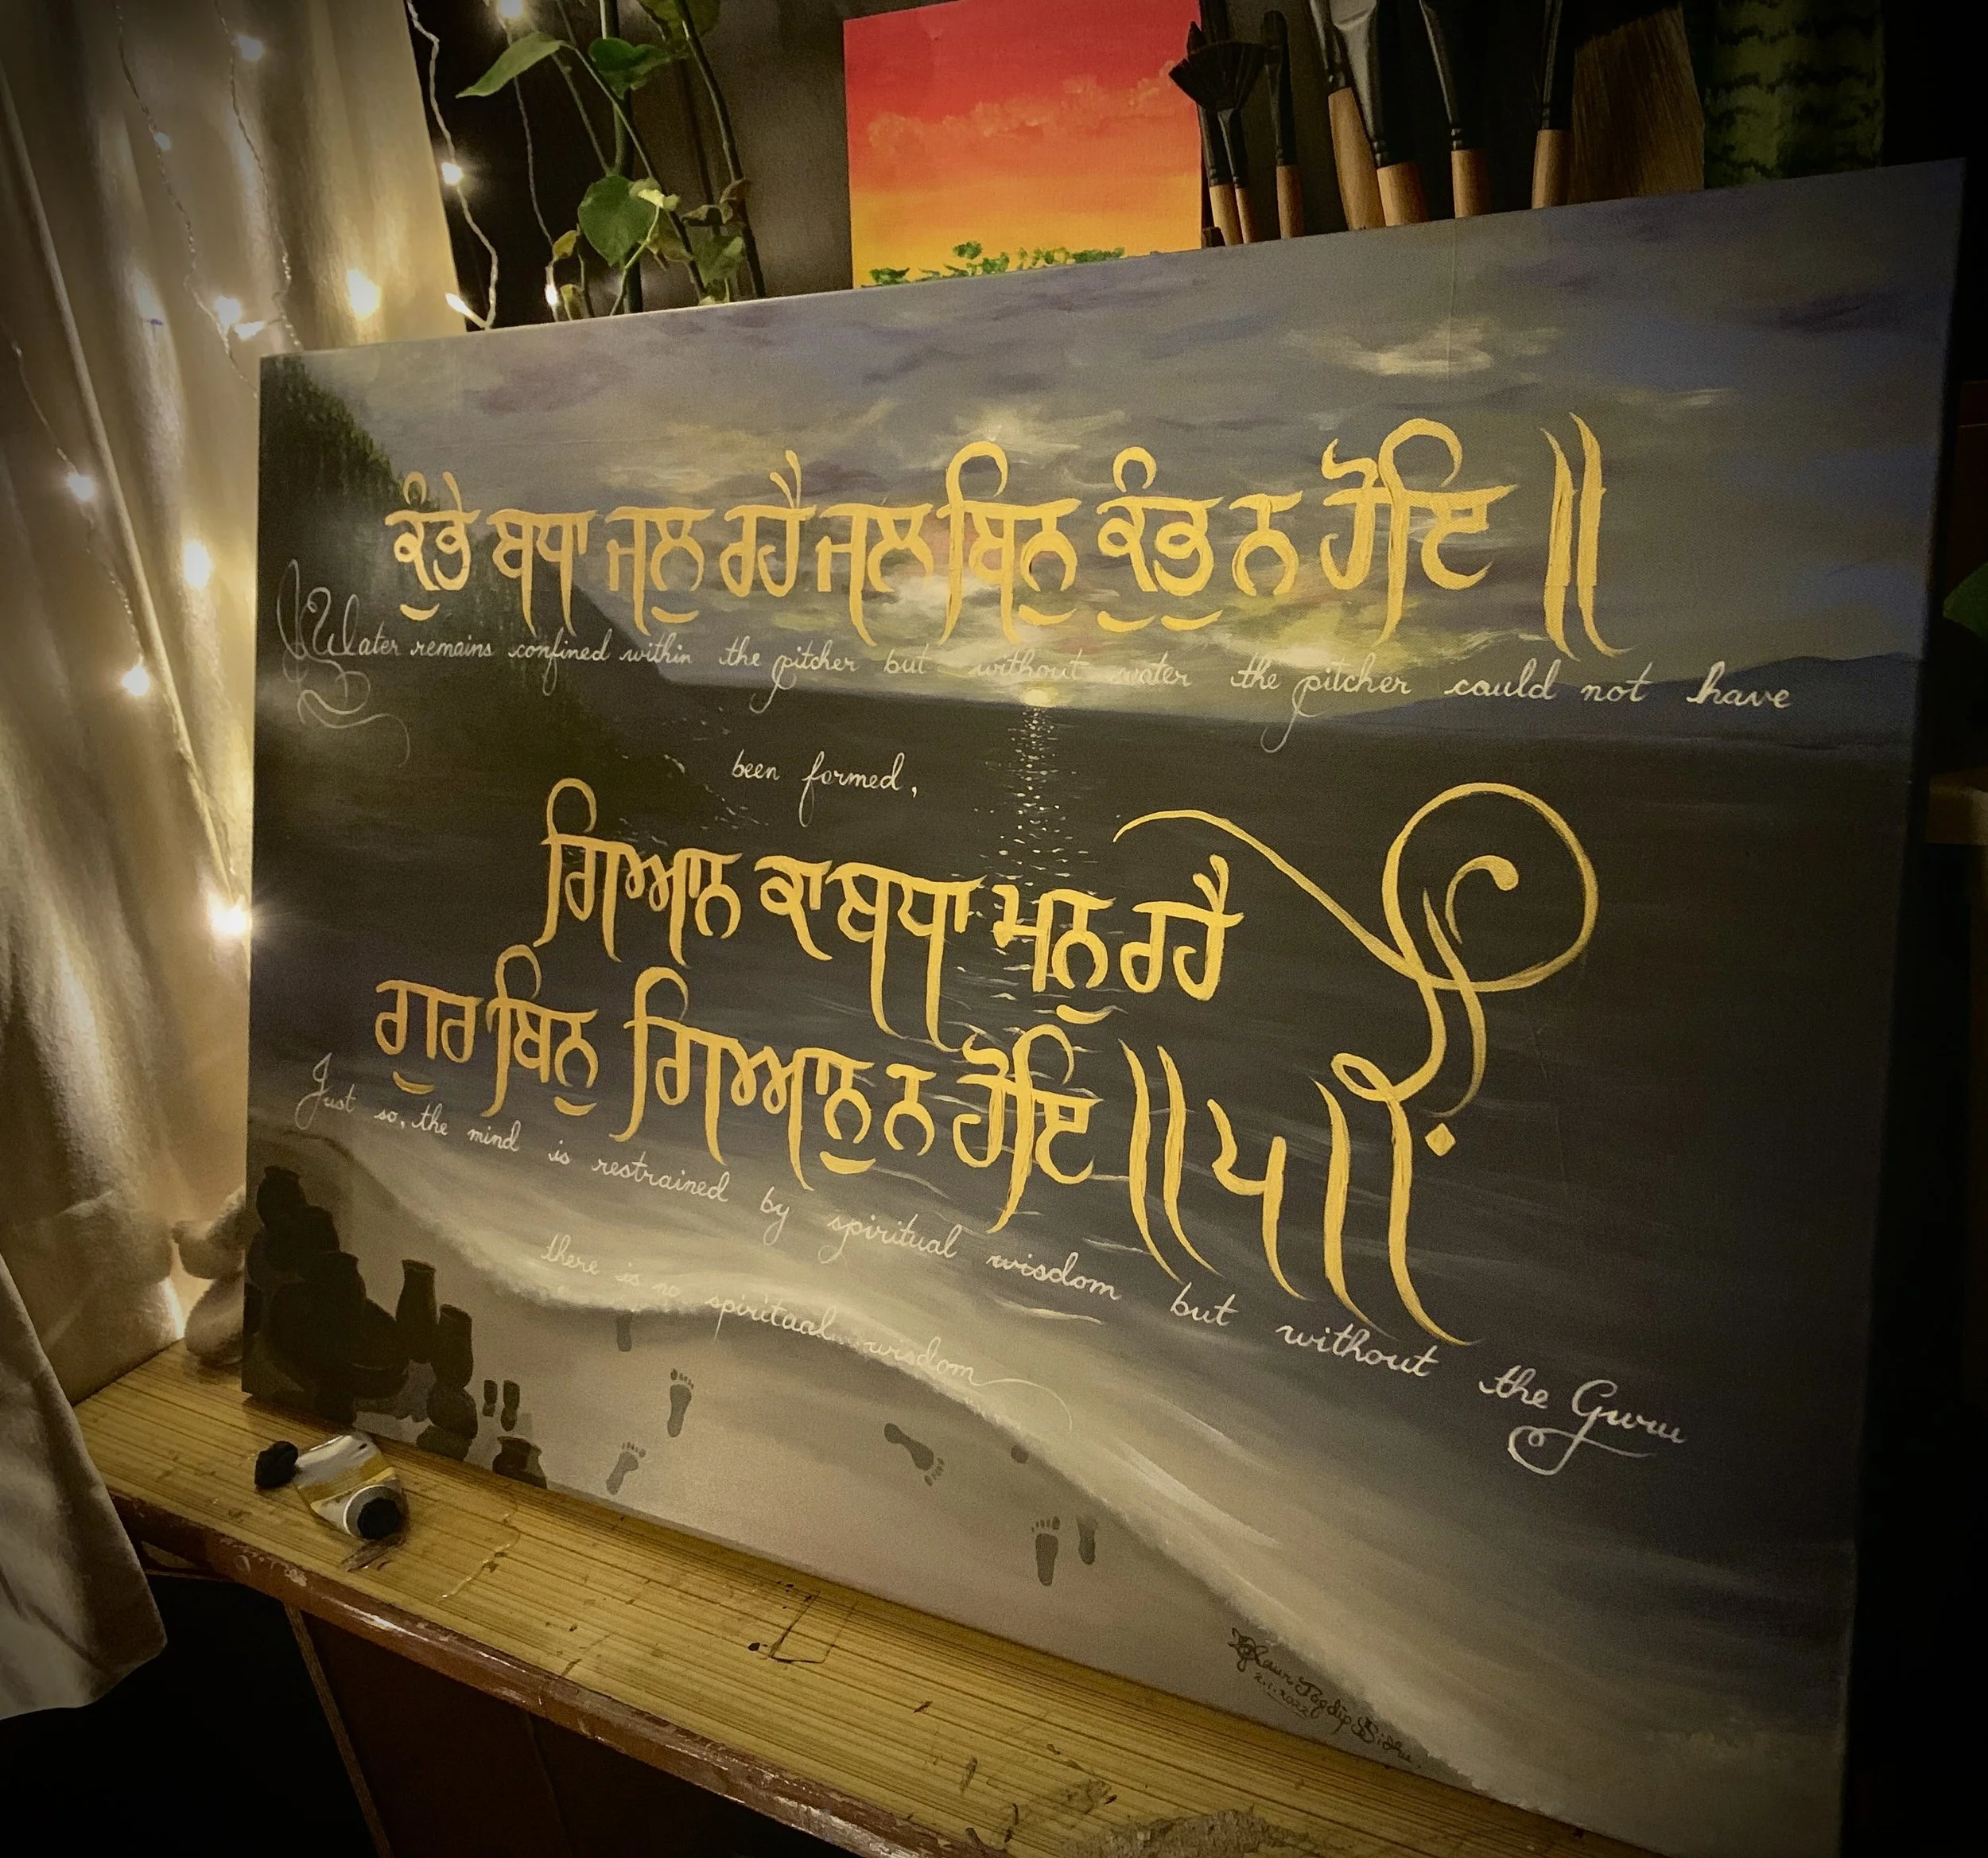 ਕੁੰਭੇ ਬਧਾ ਜਲੁ ਰਹੈ ਜਲ ਬਿਨੁ ਕੁੰਭੁ ਨ ਹੋਇ ॥
Water remains confined within the pitcher but without water the pitcher could not have
been formed,
ਗਿਆਨ ਕਾ ਬਧਾ ਮਨੁ ਰਹੈ
ਗੁਰ ਬਿਨੁ ਗਿਆਨੁ ਨ ਹੋਇ ॥੫॥
Just so, the mind is restrained by spiritual wisdom but without the Guru
there is no spiritual wisdom
Kaur Jagdip Sidhu
2.1.2022